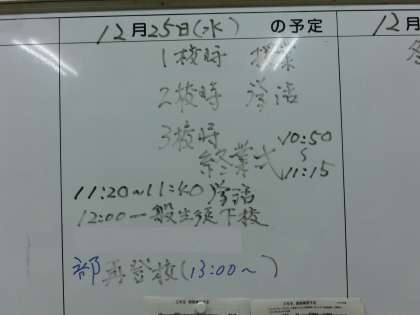 12月25日(水) の予定
12月
1校時 授業
2校時 学活
3校時
終業式 10:50〜11:15
11:20~11:40 学活
12:00 一般生徒下校
部 再登校(13:00~)